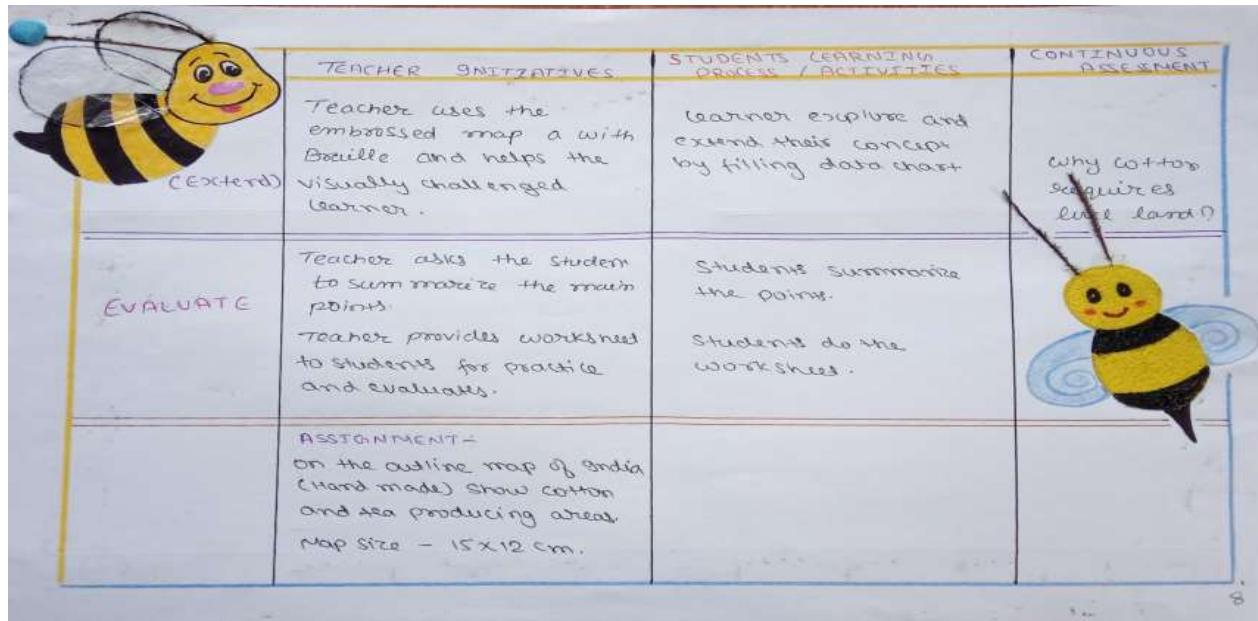 TEACHER INITIATIVES
STUDENTS LEARNING
PROCESS / ACTIVITIES
CONTINUOUS
ASSESSMENT
(Extend)
Teacher uses the
embrossed map a with
Braille and helps the
visually challenged
learner.
Learner explore and
extend their concept
by filling data chart
why cotton
requires
land?
EVALUATE
Teacher asks the student
to summarize the main
points.
Teaher provides worksheet
to students for practice
and evaluates.
Students summarize
the points.
Students do the
worksheet.
ASSIGNMENT-
on the outline map of India
(Hand made) show cotton
and tea producing areas.
Map size - 15x12 cm.
8